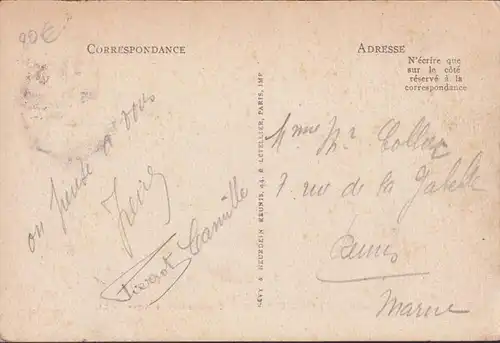 90€
CORRESPONDANCE
on pense à vous
Camille
LÉVY & NEURDEIN RÉUNIS, 44, R. LETELLIER, PARIS, IMP
ADRESSE
N'écrire que
sur le côté
réservé à la
correspondance
Mme
7 rue de la
Reims
Marne